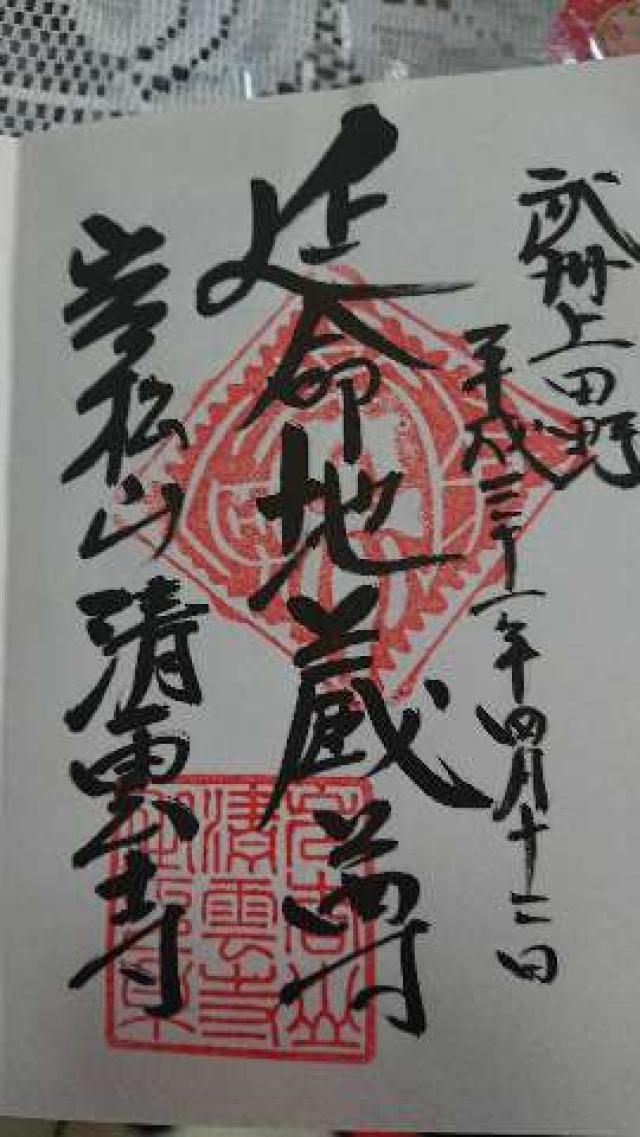 武州上田野
平成三十一年四月十二日
延命地蔵尊
岩松山清雲寺
清雲寺